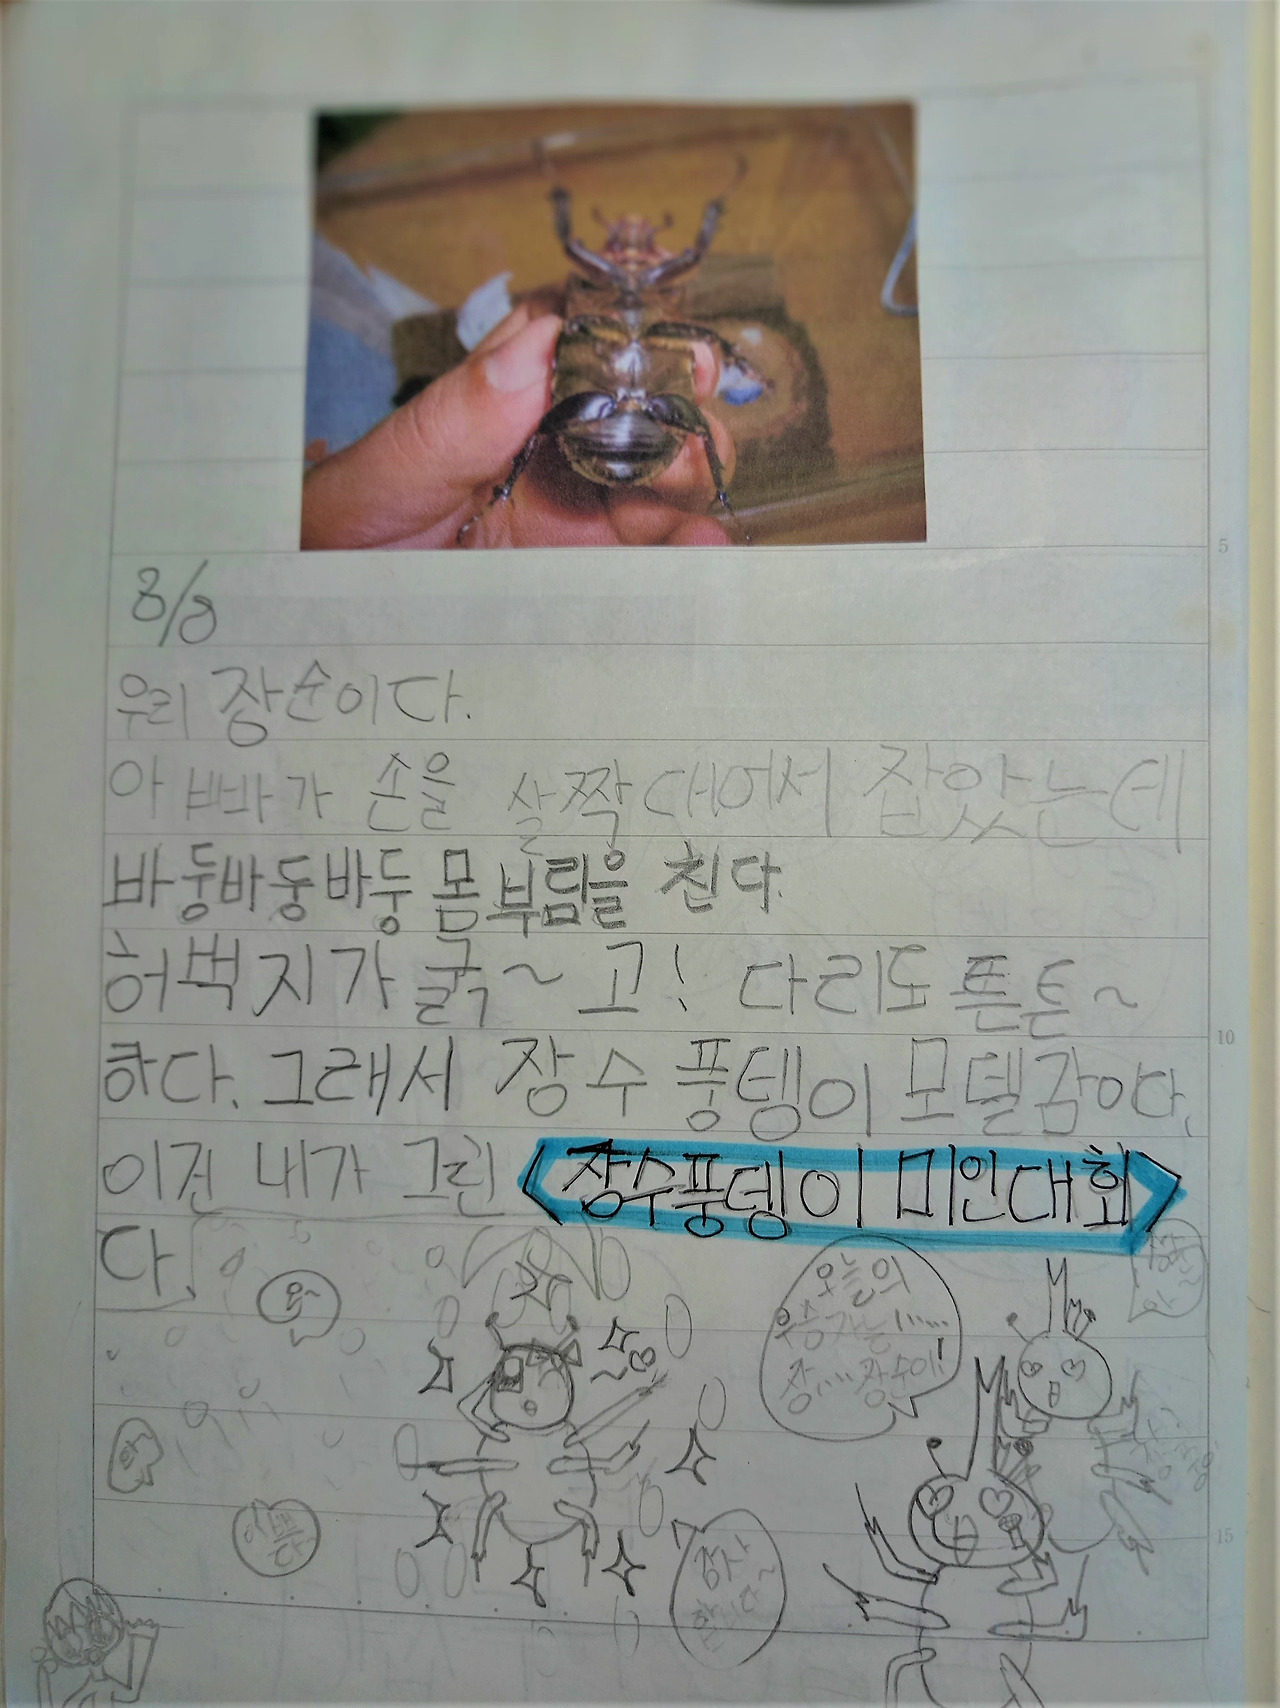 5
8/8
우리 장순이다.
아빠가 손을 살짝 대어서 잡았는데
바둥바둥바둥 몸부림을 친다.
허벅지가 굵~고! 다리도 튼튼~
하다. 그래서 장수풍뎅이 모델감이다.
10
이건 내가 그린 <장수풍뎅이 미인대회>
다.
오~
오늘의
우승자는!.....
장.... 장순이!
와
이쁘다
감사
합니다~
15